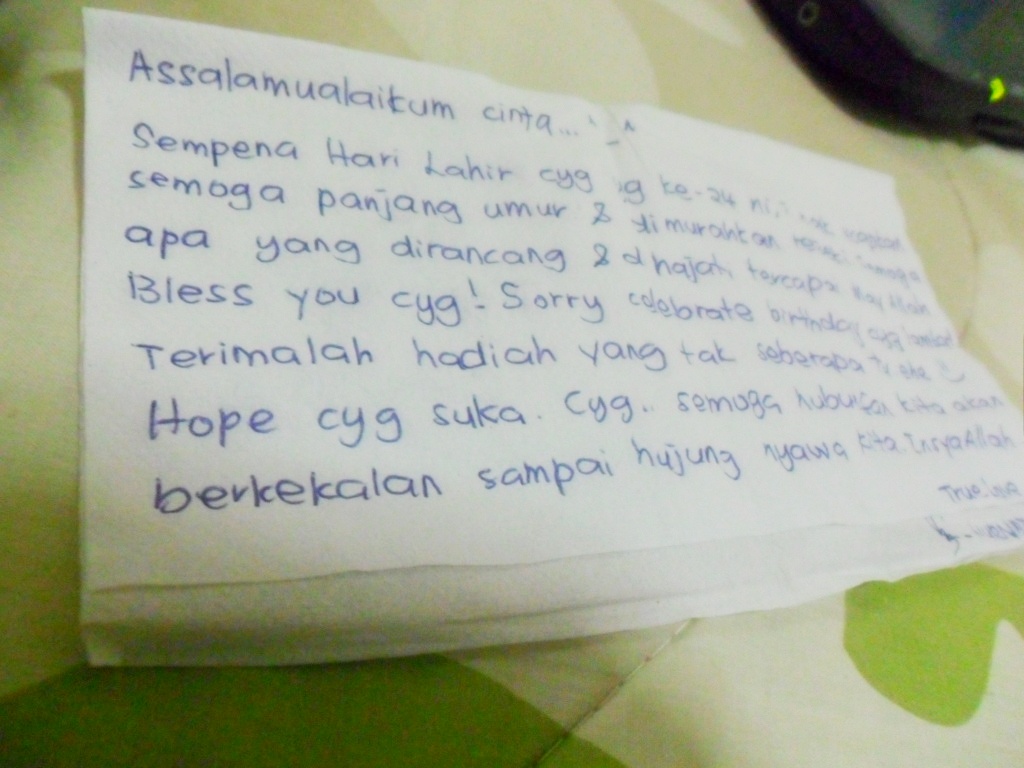 Assalamualaikum cinta... ^_^
Sempena Hari Lahir cyg yg ke-24 ni,
semoga panjang umur & dimurahkan rezeki semoga
apa yang dirancang & dhajati tercapai May Allah
Bless you cyg! Sorry celebrate birthday cyg lambat
Terimalah hadiah yang tak seberapa
Hope cyg suka. Cyg.. semoga hubungan kita akan
berkekalan sampai hujung nyawa kita. InsyaAllah
True Love